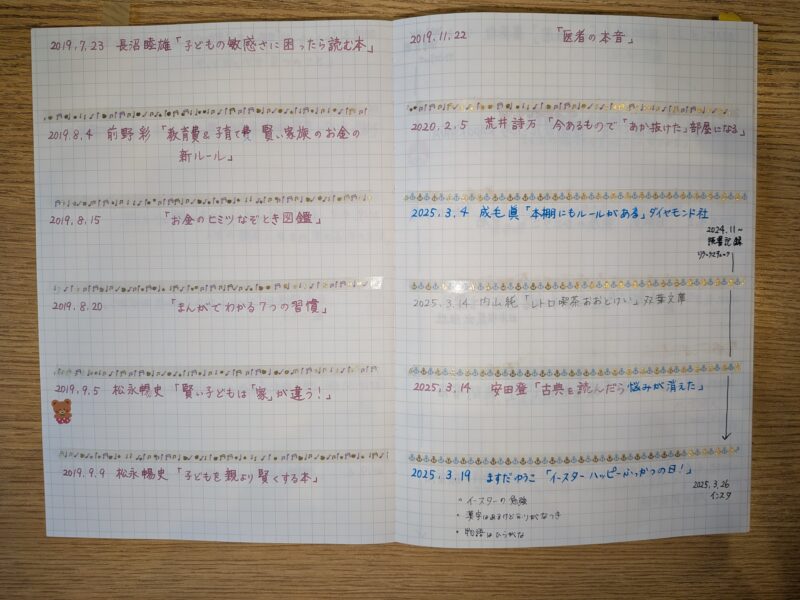 2019.7.23 長沼睦雄「子どもの敏感さに困ったら読む本」
2019.8.4 前野彩「教育費&子育て費 賢い家族のお金の
新ルール」
2019.8.15 「お金のヒミツなぞとき図鑑」
2019.8.20 「まんがでわかる7つの習慣」
2019.9.5 松永暢史「賢い子どもは「家」が違う!」
2019.9.9 松永暢史「子どもを親より賢くする本」
2019.11.22 「医者の本音」
2020.2.5 荒井詩万「今あるもので「あか抜けた」部屋になる」
2025.3.4 成毛眞「本棚にもルールがある」ダイヤモンド社
2024.11~
読書記録
2025.3.14 内山純「レトロ喫茶おおどけい」双葉文庫
2025.3.14 安田登「古典を読んだら悩みが消えた」
2025.3.19 ますだゆうこ「イースターハッピーふっかつの日!」
2025.3.26
インスタ
・イースターの
・漢字はあるけどふりがなつき
・物語はひらがな